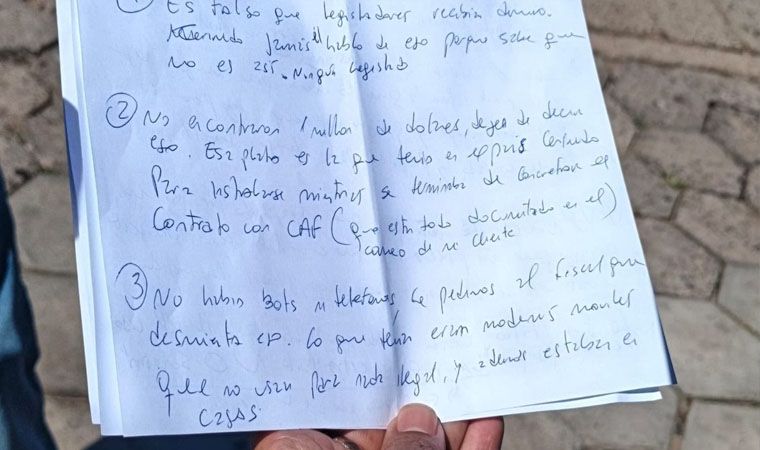 ① Es falso que legisladores recibían dinero.
jamás habló de eso porque sabe que
no es así. Ningún legislad
② No encontraron 1 millon de dolares, dejen de decir
eso. Esa plata es la que tenia en el pais
Para instalarse mientras se terminaba de concretar el
Contrato con CAF (que esta todo documentado en el)
correo de mi cliente
③ No habia bots ni telefonos, le pedimos al fiscal que
desmienta eso. Lo que tenia eran modems moviles
que no usan para nada ilegal, y ademas estaban en
cajas.